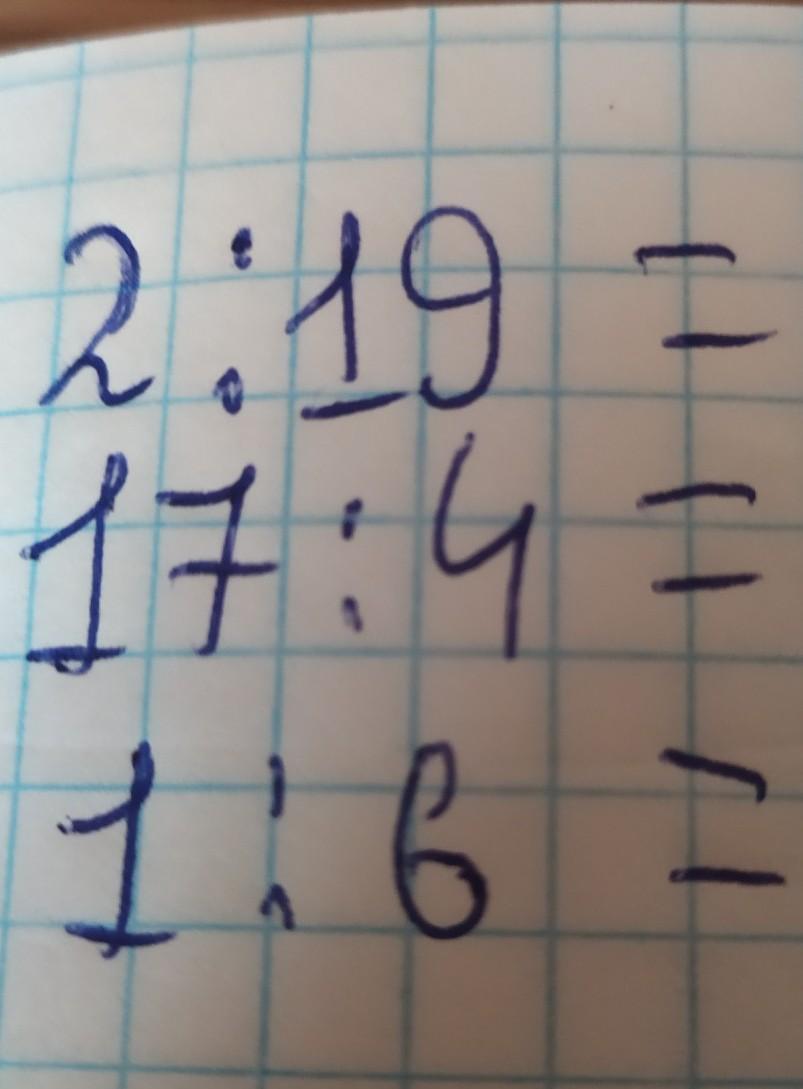 2 : 19 =
17 : 4 =
1 : 6 =